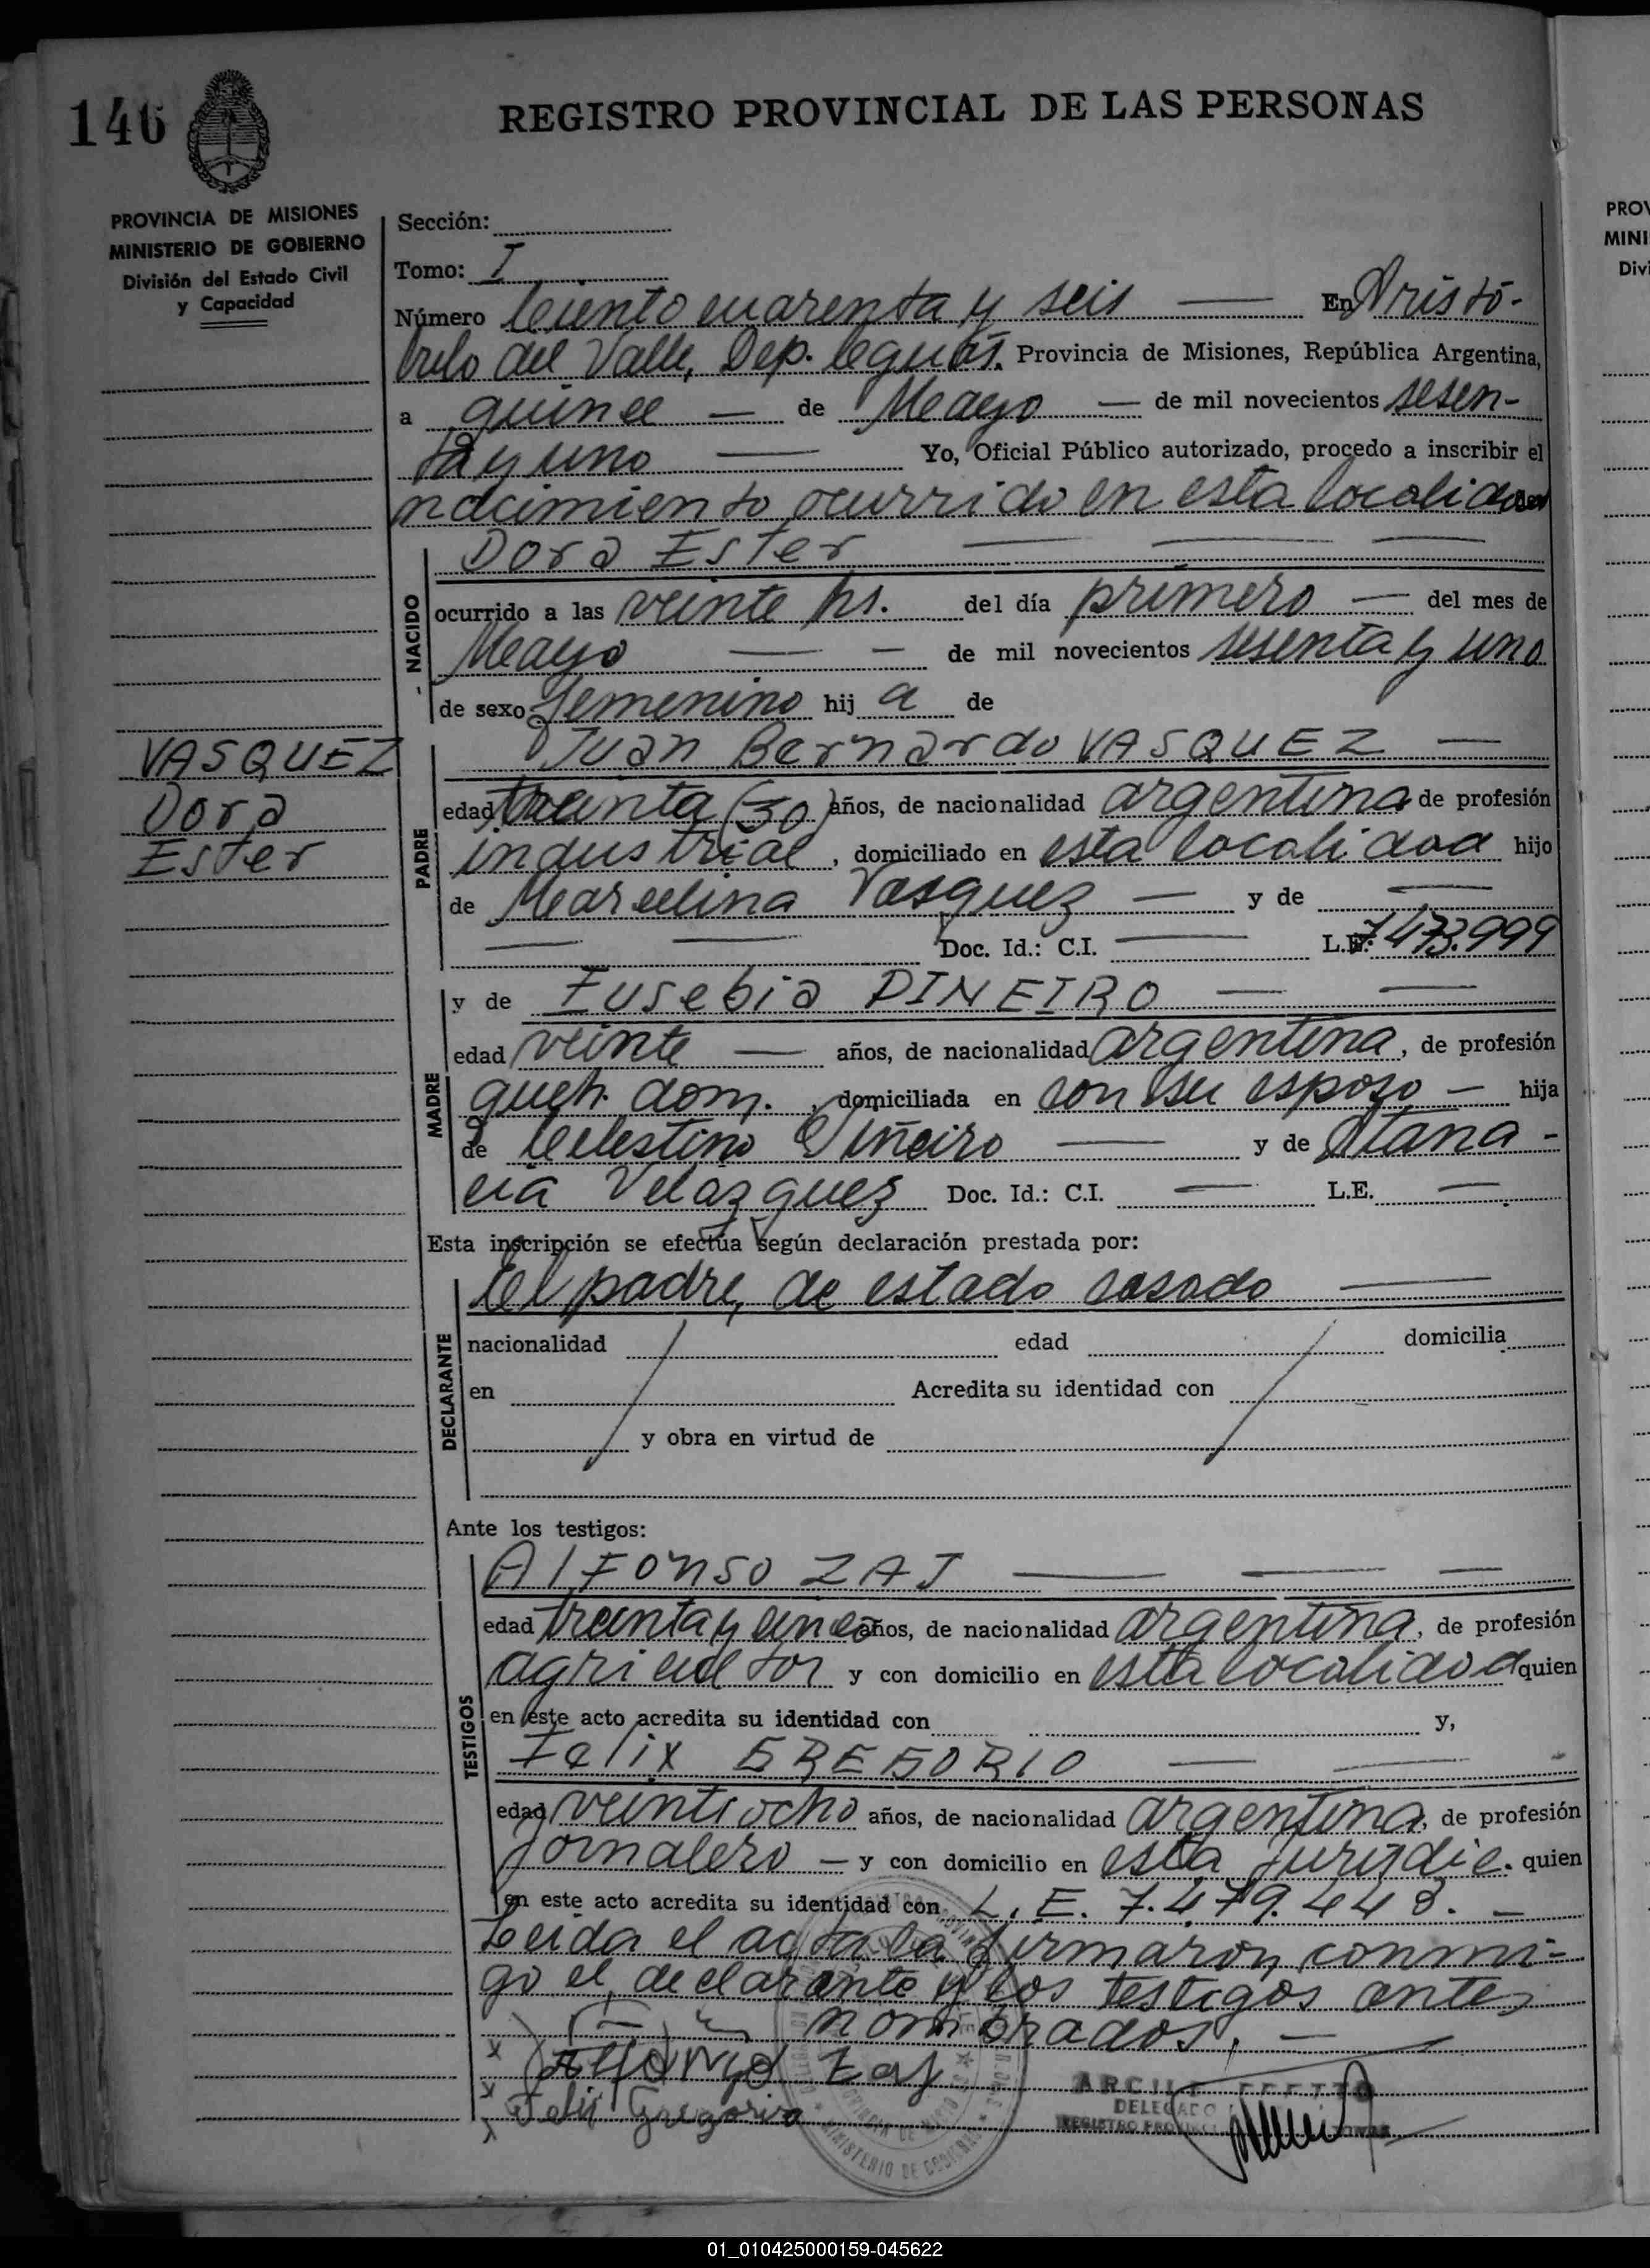 146
REGISTRO PROVINCIAL DE LAS PERSONAS
PROVINCIA DE MISIONES
MINISTERIO DE GOBIERNO
División del Estado Civil
y Capacidad
Sección:
Tomo: I
Número Ciento cuarenta y seis En Aristó-
bulo del Valle, Dep. Cguás. Provincia de Misiones, República Argentina,
a quince de Mayo de mil novecientos sesen-
ta y uno Yo, Oficial Público autorizado, procedo a inscribir el
nacimiento ocurrido en esta localidad
NACIDO
Dora Ester
ocurrido a las veinte hs. del día primero del mes de
Mayo de mil novecientos sesenta y uno
de sexo femenino hij a de
VASQUEZ
Dora
Ester
PADRE
Juan Bernardo VASQUEZ
edad treinta (30) años, de nacionalidad argentina de profesión
industrial, domiciliado en esta localidad hijo
de Marcelina Vasquez y de
Doc. Id.: C.I. L.E. 7473.999
MADRE
y de Eusebia PINEIRO
edad veinte años, de nacionalidad argentina, de profesión
queh. dom., domiciliada en con su esposo hija
de Celestino Piñeiro y de Atana-
cia Velazquez Doc. Id.: C.I. L.E.
Esta inscripción se efectúa según declaración prestada por:
DECLARANTE
El padre, de estado casado
nacionalidad edad domicilia
en Acredita su identidad con
y obra en virtud de
Ante los testigos:
TESTIGOS
Alfonso ZAJ
edad treinta y cinco años, de nacionalidad argentina, de profesión
agricultor y con domicilio en esta localidad quien
en este acto acredita su identidad con y,
Felix GREGORIO
edad veintiocho años, de nacionalidad argentina, de profesión
jornalero y con domicilio en esta jurisdic. quien
en este acto acredita su identidad con L.E. 7.479.448.
Leida el acta la firmaron conmi-
go el declarante y los testigos antes
nombrados.
Alfonso Zaj
Felix Gregorio
DELEGADO
MINISTERIO DE GOBIERNO
01_010425000159-045622